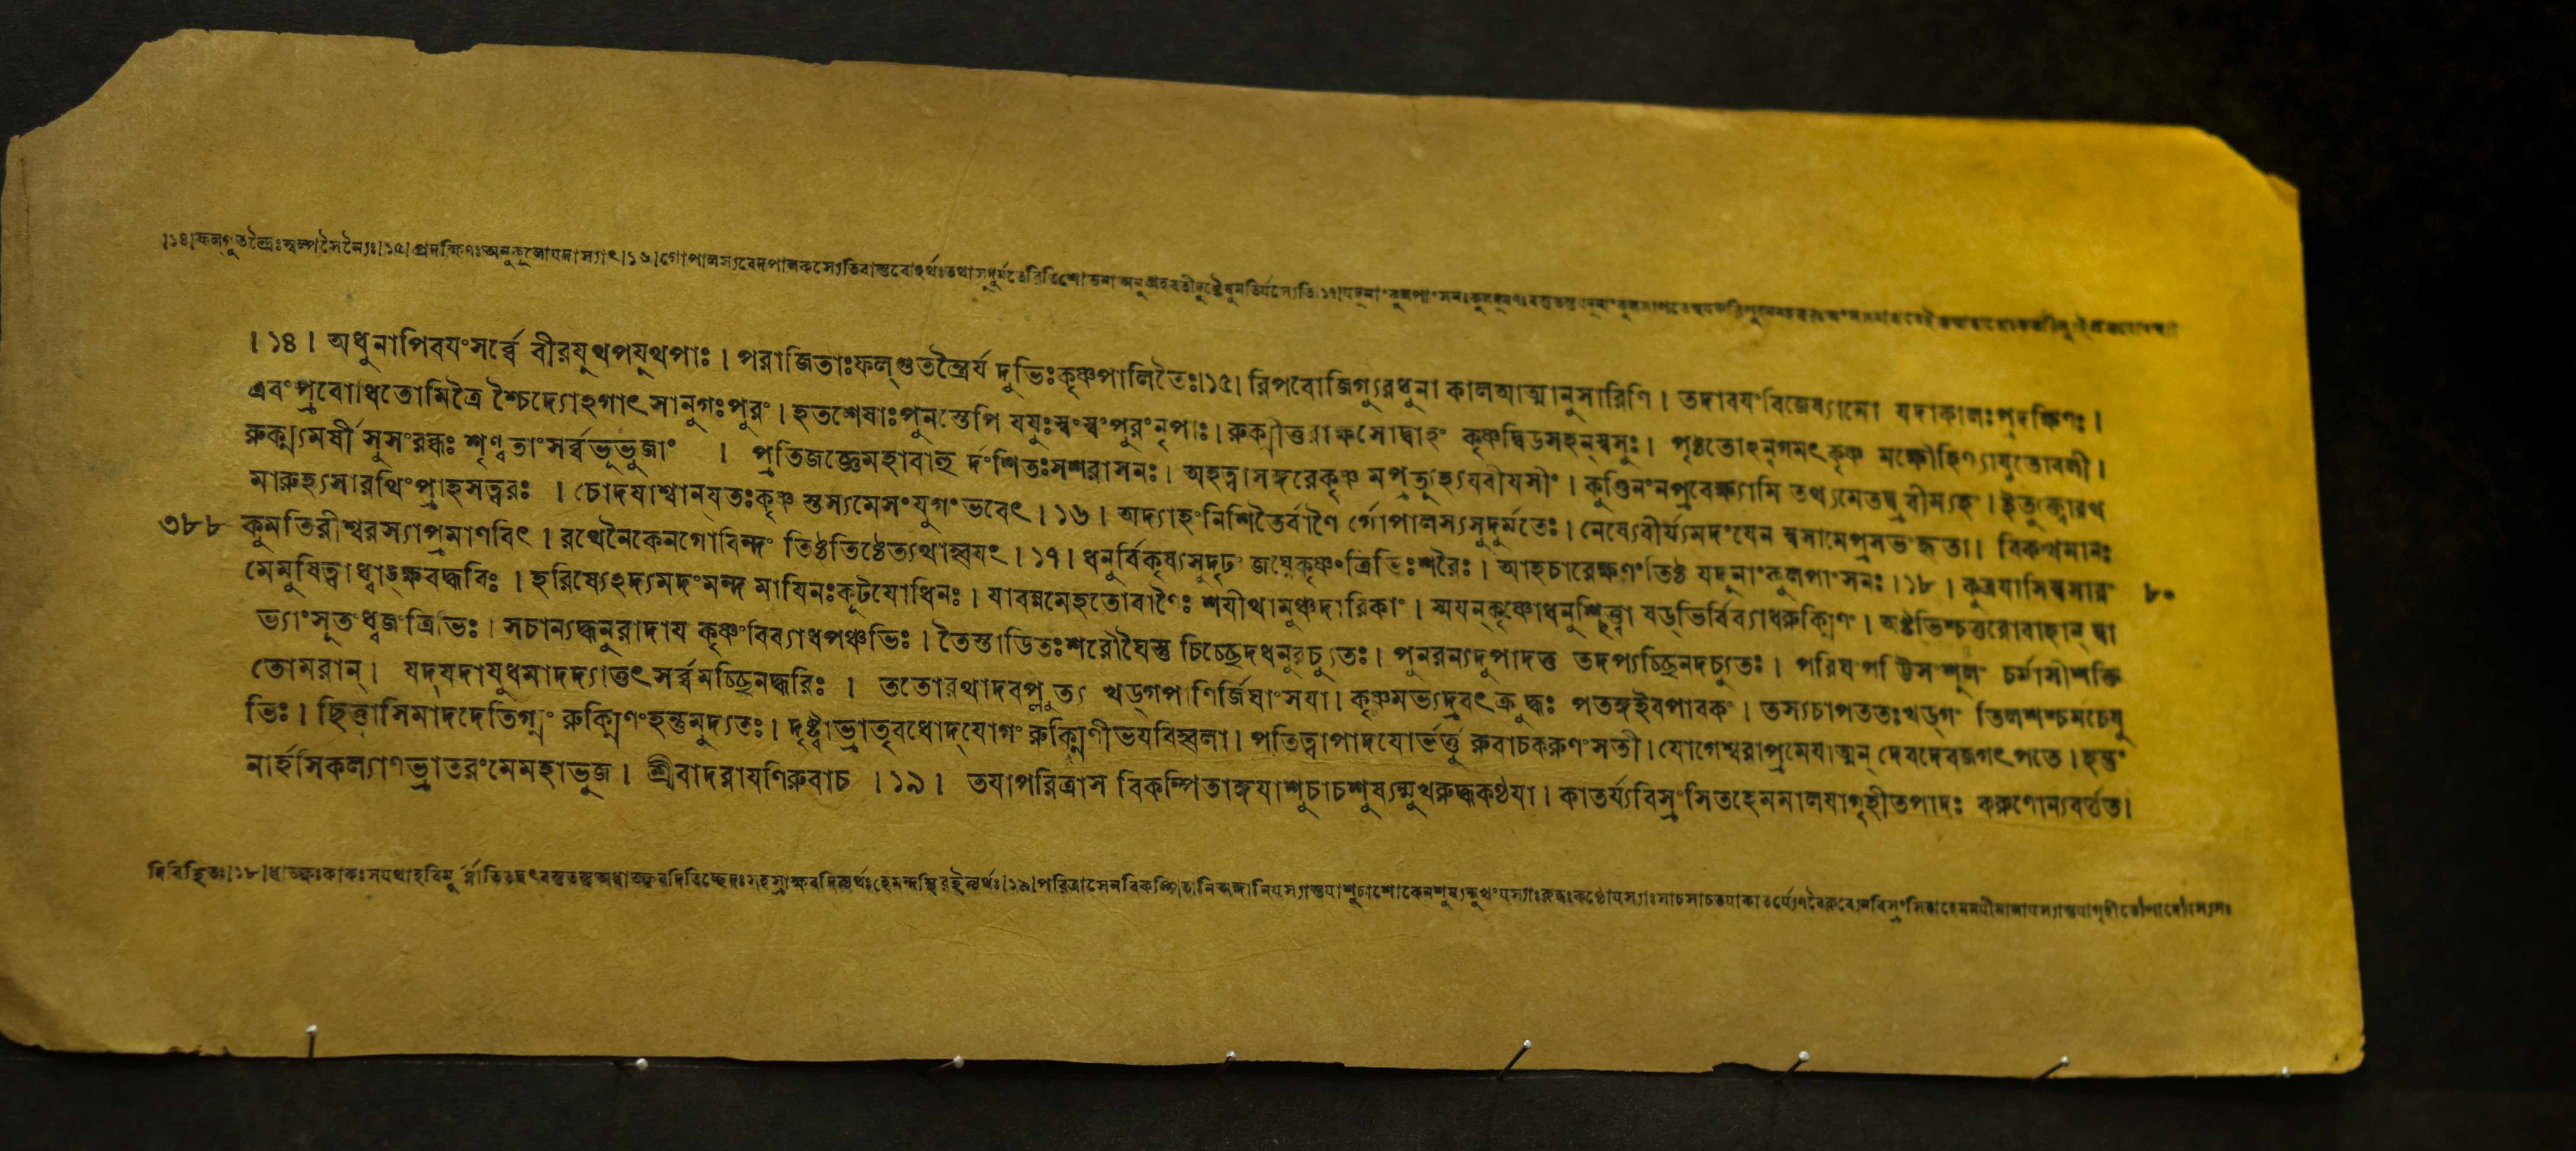 ।১৪।ফল্গুতন্ত্রৈঃস্বল্পসৈন্যৈঃ।১৫।প্রদক্ষিণঃঅনুকূলোযদাস্যাৎ।১৬।গোপালস্যবেদপালকস্যেতিবাস্তবোঽর্থঃতথাসুদুর্মতেরিতিশোভনা
।১৪। অধুনাপিবযংসর্ব্বে বীরযুথপযুথপাঃ। পরাজিতাঃফল্গুতন্ত্রৈর্য দুভিঃকৃষ্ণপালিতৈঃ।১৫। রিপবোজিগ্যুরধুনা কালআত্মানুসারিণি। তদাবযংবিজেষ্যামো যদাকালঃপ্রদক্ষিণঃ।
এবংপ্রবোধিতোমিত্রৈ শ্চৈদ্যোঽগাৎ সানুগঃপুরং। হতশেষাঃপুনস্তেপি যযুঃস্বংস্বংপুরংনৃপাঃ। রুক্মীতুরাক্ষসোদ্বাহং কৃষ্ণদ্বিডসহন্স্বসুঃ। পৃষ্ঠতোঽন্বগমৎকৃষ্ণ মক্ষৌহিণ্যাবৃতোবলী।
রুক্ম্যমর্ষী সুসংরব্ধঃ শৃণ্বতাংসর্ব্বভূভুজাং । প্রতিজজ্ঞেমহাবাহু র্দংশিতঃসশরাসনঃ। অহত্বাসঙ্গরেকৃষ্ণ মপ্রত্যুহ্যযবীযসীং। কুণ্ডিনংনপ্রবেক্ষ্যামি তথ্যমেতদ্ব্রবীম্যহং। ইত্যুক্ত্বারথ
মারুহ্যসারথিংপ্রাহসত্বরঃ । চোদযাশ্বান্যতঃকৃষ্ণ স্তস্যমেসংযুগংভবেৎ।১৬। অদ্যাহংনিশিতৈর্বাণৈ র্গোপালস্যসুদুর্মতেঃ। নেষ্যেবীর্য্যমদংযেন স্বসামেপ্রসভংহৃতা। বিকত্থমানঃ
৩৮৮ কুমতিরীশ্বরস্যাপ্রমাণবিৎ। রথেনৈকেনগোবিন্দং তিষ্ঠতিষ্ঠেত্যথাহ্বযৎ।১৭। ধনুর্বিকৃষ্যসুদৃঢং জঘ্নেকৃষ্ণংত্রিভিঃশরৈঃ। আহচারেক্ষণংতিষ্ঠ যদূনাংকুলপাংসনঃ।১৮। কুত্রযাসিস্বসারং ৮০
মেমুষিত্বাধ্বাঙ্ক্ষবদ্ধবিঃ। হরিষ্যেঽদ্যমদংমন্দ মাযিনঃকূটযোধিনঃ। যাবন্নমেহতোবাণৈঃ শযীথামুঞ্চদারিকাং। স্মযন্কৃষ্ণোধনুশ্ছিত্ত্বা ষড্ভির্বিব্যাধরুক্মিণং। অষ্টভিশ্চতুরোবাহান্ দ্বা
ভ্যাংসূতংধ্বজংত্রিভিঃ। সচান্যদ্ধনুরাদায কৃষ্ণংবিব্যাধপঞ্চভিঃ। তৈস্তাডিতঃশরৌঘৈস্তু চিচ্ছেদধনুরচ্যুতঃ। পুনরন্যদুপাদত্ত তদপ্যচ্ছিনদচ্যুতঃ। পরিঘংপট্টিসংশূলং চর্মাসীশক্তি
তোমরান্। যদ্যদাযুধমাদদ্যাত্তৎসর্ব্বমচ্ছিনদ্ধরিঃ । ততোরথাদবপ্লুত্য খড্গপাণির্জিঘাংসযা। কৃষ্ণমভ্যদ্রবৎক্রুদ্ধঃ পতঙ্গইবপাবকং। তস্যচাপততঃখড্গং তিলশশ্চর্মচেষু
ভিঃ। ছিত্ত্বাসিমাদদেতিগ্মং রুক্মিণংহন্তুমুদ্যতঃ। দৃষ্ট্বাভ্রাতৃবধোদ্যোগং রুক্মিণীভযবিহ্বলা। পতিত্বাপাদযোর্ভর্ত্তু রুবাচকরুণংসতী। যোগেশ্বরাপ্রমেযাত্মন্ দেবদেবজগৎপতে। হন্তুং
নার্হসিকল্যাণভ্রাতরংমেমহাভুজ। শ্রীবাদরাযণিরুবাচ ।১৯। তযাপরিত্রাস বিকম্পিতাঙ্গযাশুচাচশুষ্যন্মুখরুদ্ধকণ্ঠযা। কাতর্য্যবিস্রংসিতহেমমালযাগৃহীতপাদঃ করুণোন্যবর্ত্তত।
।১৮।ধ্বাঙ্ক্ষঃকাকঃসযথাহবির্মু ।১৯।পরিত্রাসেনবিকম্পিতানিঅঙ্গানিযস্যাস্তযাশুচাশোকেনশুষ্যন্মুখংযস্যাঃরুদ্ধঃকণ্ঠোযস্যাঃসাচসাচতযা